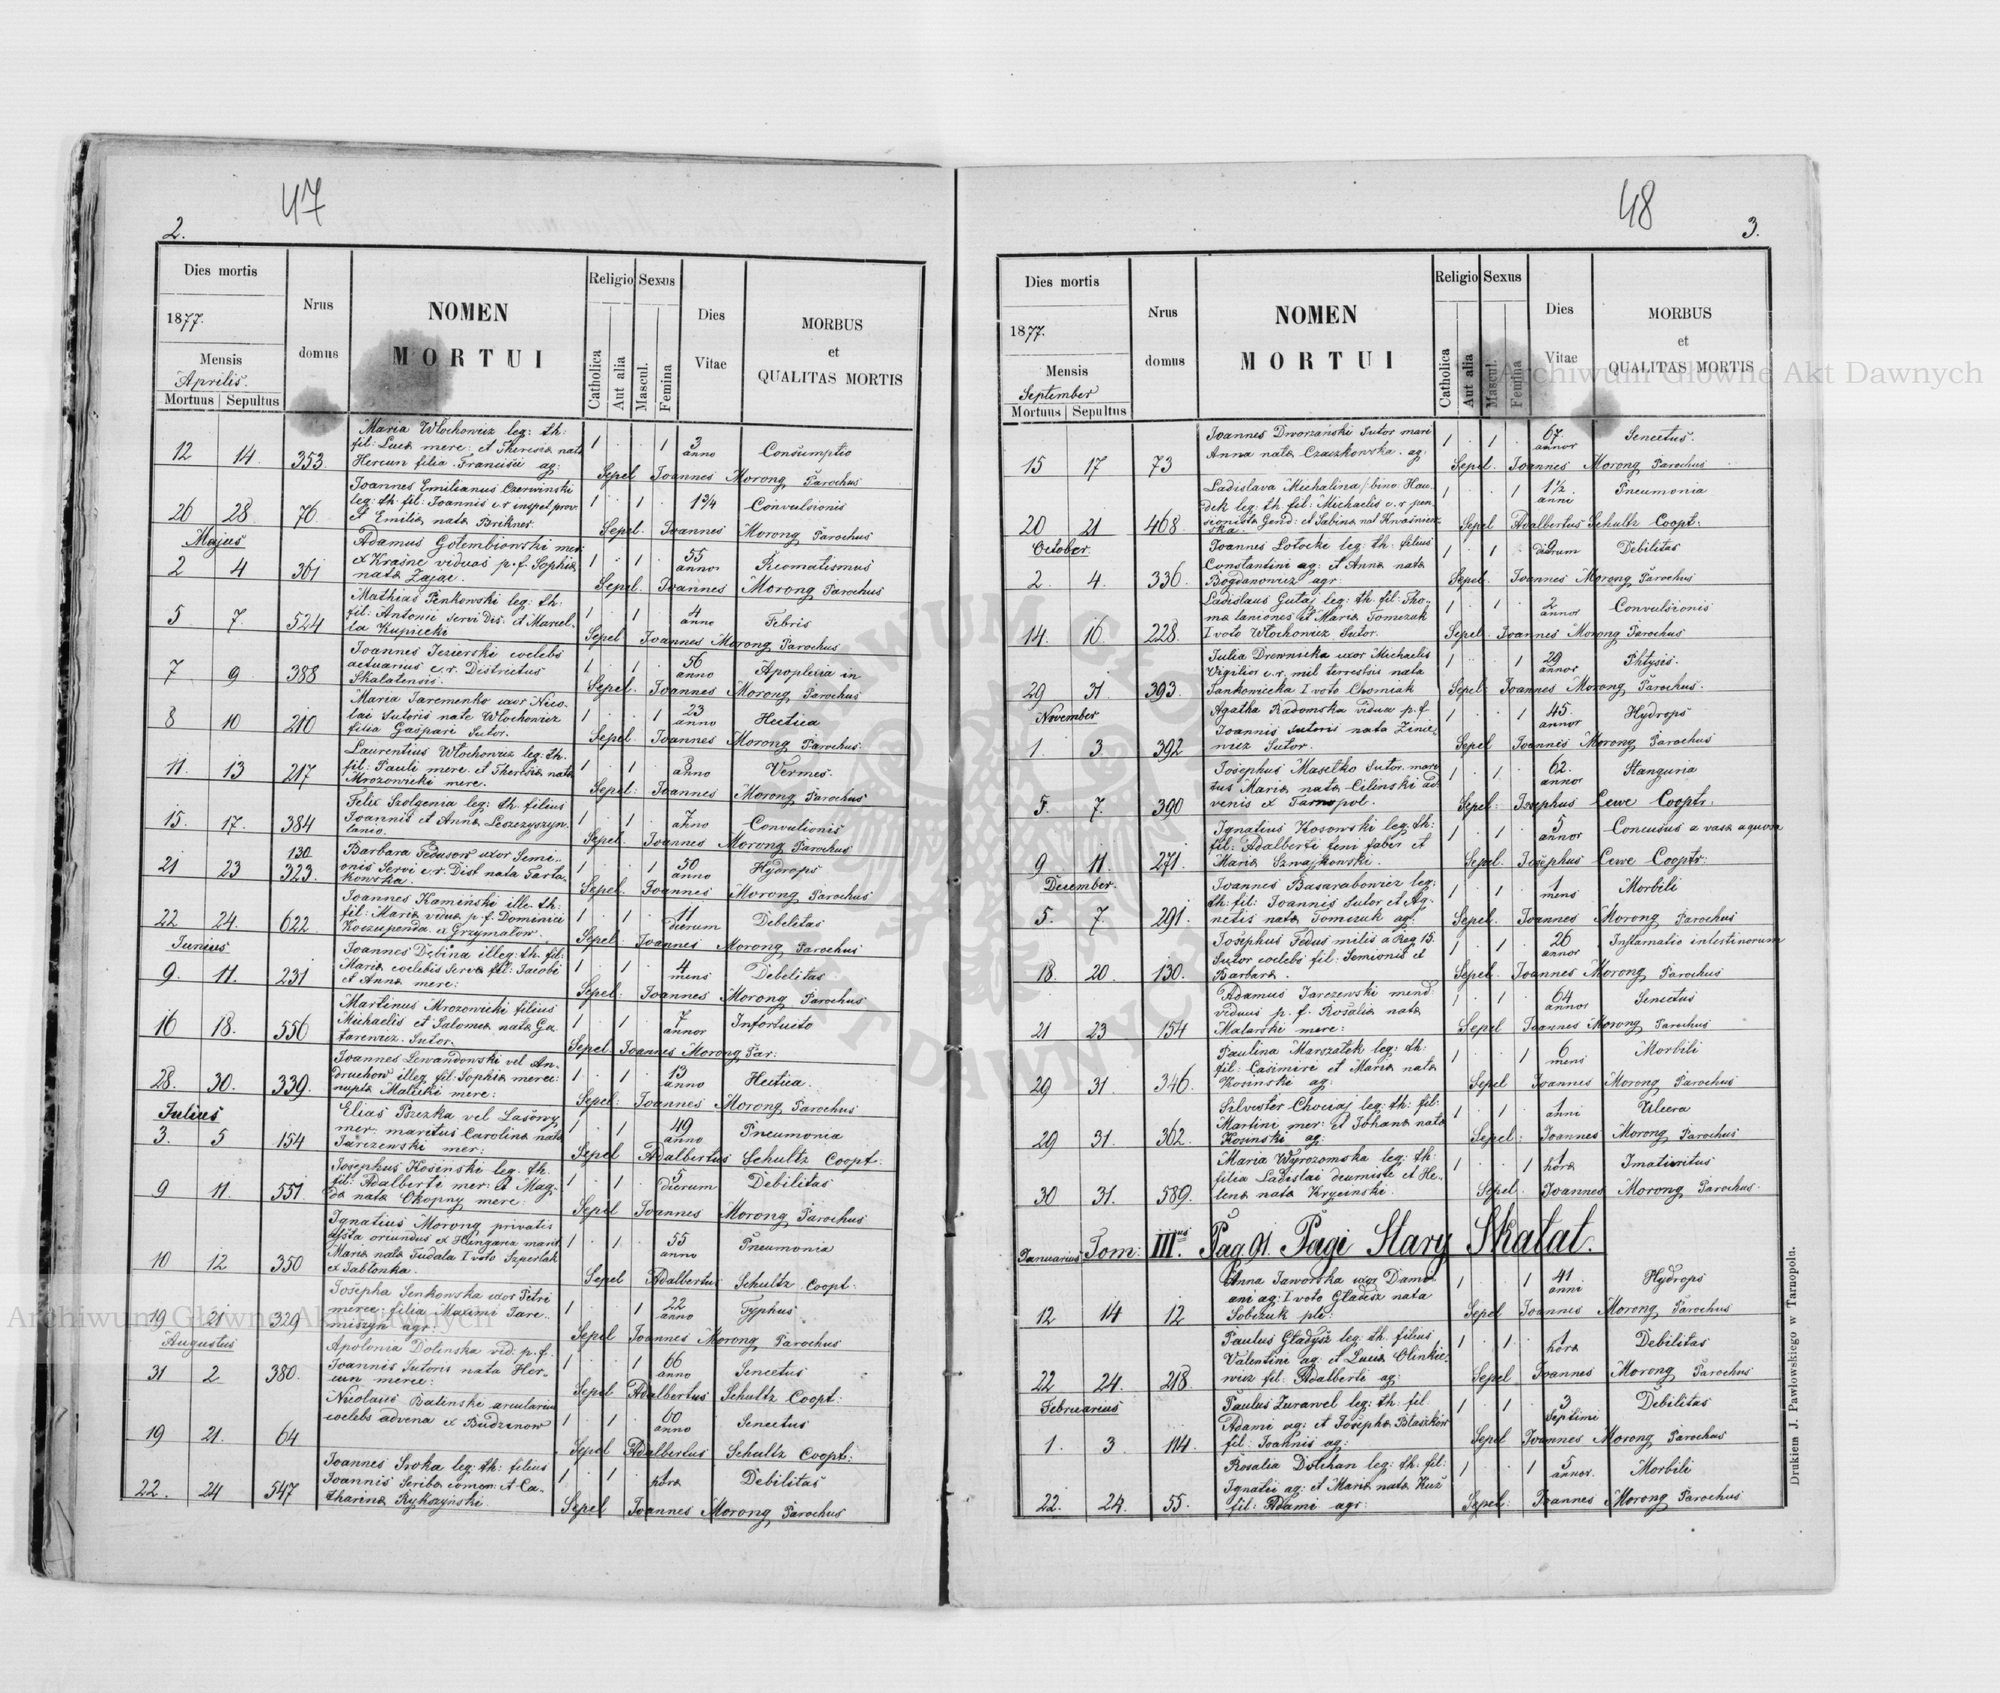 47
2.
Dies mortis
1877.
Mensis
Aprilis.
Mortuus Sepultus
Nrus
domus
NOMEN
MORTUI
Religio
Catholica
Aut alia
Sexus
Mascul.
Femina
Dies
Vitae
MORBUS
et
QUALITAS MORTIS
Maria Włochowicz leg: th:
fil: Luca merc: et Theresia nata
Hercun filia Francisci ag:
12 14. 353. 1 . . 1 3 anno Consumptio
Sepel Joannes Morong Parochus
Joannes Emilianus Czerwinski
leg: th: fil: Joannis c.r inspet prov.
et Emilia nata Brikner.
26 28. 76. 1 . 1 . 1¾ Convulsionis
Sepel. Joannes Morong Parochus
Majus
Adamus Gołembiowski mer:
x Krasne viduas p.f. Sophia
nata Zając.
2 4 361 1 . 1 . 55 annor Reomatismus
Sepel. Joannes Morong Parochus
Mathias Penkowski leg: th:
fil: Antonii servi Dis: et Marcel-
la Kupiecki
5 7. 524 1 . 1 . 4 anno Febris
Sepel Joannes Morong Parochus
Joannes Jezierski coelebs
actuarius c.r. Districtus
Skalatensis.
7 9 388 1 . 1 . 56 anno Apoplexia in
Sepel. Joannes Morong Parochus
Maria Jaremenko uxor Nico-
lai sutoris nate Włochowicz
filia Gaspari sutor.
8 10 210 1 . . 1 23 anno Hectica
Sepel. Joannes Morong Parochus.
Laurentius Włochowicz leg: th.
fil: Pauli merc. et Theresia nata
Mrozowicki merc.
11. 13 217 1 . 1 . 8 anno Vermes.
Sepel: Joannes Morong Parochus
Felix Szolgenia leg: th. filius
Joannis et Anna Leszczyszyn.
lanio.
15. 17. 384 1 . 1 . 7 anno Convutionis
Sepel Joannes Morong Parochus
Barbara Fedusow uxor Semi-
onis Servi c.r. Dist nata Tarta-
kowska.
21 23 130. 323. 1 . . 1 50 anno Hydrops
Sepel. Joannes Morong Parochus
Joannes Kamiński ille. th:
fil: Maria vidua p.f. Dominici
Koczupenda x Grzymałow.
22 24. 622 1 . 1 . 11 dierum Debelitas
Sepel: Joannes Morong Parochus
Junius
Joannes Debina illeg: th. fil:
Maria coelebis serva fil: Jacobi
et Anna merc:
9. 11. 231 1 . 1 . 4 mens Debelitas
Sepel: Joannes Morong Parochus
Martinus Mrozowicki filius
Michaelis et Salomea nata Ga
tarewicz. Sutor.
16 18. 556 1 . 1 . 7 annor Infortuito
Sepel. Joannes Morong Par:
Joannes Lewandowski vel An-
druchow illeg fil: Sophia merc:
nupta Malicki merc:
28. 30. 339. 1 . 1 . 13 anno Hectica.
Sepel: Joannes Morong Parochus
Julius
Elias Pszezka vel Lasowy
mer. maretus Carolina nata
Jarczewski mer:
3. 5 154 1 . 1 . 49 anno Pneumonia
Sepel Adalbertus Schultz Coopt:
Josephus Kosinski leg. th.
fil: Adalberti mer: et Mag-
da nata Okopny merc:
9 11. 551. 1 . 1 . 5 dierum Debilitas
Sepel Joannes Morong Parochus
Ignatius Morong privatis
oriundus x Hungaria marit
Maria nata Fudala I voto Szperlak
x Jabłonka.
10 12 350 1 . 1 . 55 anno Pneumonia
Sepel Adalbertus Schultz Coopt:
Josepha Senkowska uxor Petri
merce: filia Maximi Jare-
miszyn agr:
19 21 329 1 . . 1 22 anno Typhus
Sepel Joannes Morong Parochus
Augustus
Apolonia Dolinska vid: p.f.
Joannis Sutoris nata Her-
cun merce:
31 2 380. 1 . . 1 66 anno Senectus
Sepel Adalbertus Schultz Coopt:
Nicolaus Batinski arcularius
coelebs advena x Budzanow
19 21. 64 1 . 1 . 60 anno Senectus
Sepel Adalbertus Schultz Coopt:
Joannes Sroka leg: th: filius
Joannis Scriba comen: et Ca-
tharina Rykszyński
22. 24 547 1 . 1 . 1 hora Debilitas
Sepel Joannes Morong Parochus
48
3.
Dies mortis
1877.
Mensis
September
Mortuus Sepultus
Nrus
domus
NOMEN
MORTUI
Religio
Catholica
Aut alia
Sexus
Mascul.
Femina
Dies
Vitae
MORBUS
et
QUALITAS MORTIS
Joannes Dworzański Sutor mari
Anna nata Czaczkowska. ag.
15 17 73 1 . 1 . 67. annor Senectus.
Sepel. Joannes Morong Parochus
Ladislava Michalina /bino Hau-
dek leg: th fil: Michaelis c.r pen
sionista Gend: et Sabina nat Kwaśniew
ska.
20 21 468. . . 1 1½ anni Pneumonia
Sepel Adalbertus Schultz Coopt:
October.
Joannes Łotocki leg: th: filius
Constantini ag: et Anna nata
Bogdanowicz agr:
2. 4. 336. 1 . 1 . 9 dierum Debilitas
Sepel. Joannes Morong Parochus
Ladislaus Gutaj leg: th: fil: Tho-
ma laniones et Maria Tomczuk
I voto Włochowicz Sutor.
14. 16 228. 1 . 1 . 2 annor Convulsionis
Sepel. Joannes Morong Parochus
Julia Drewnicka uxor Michaelis
Vigilior c.r. mil terrestris nata
Jankowiecka I voto Chomiak
29 31 393. 1 . . 1 29 annor Phtysis.
Sepel. Joannes Morong Parochus.
November
Agatha Radomska vidua p.f.
Joannis sutoris nata Zinie-
wicz Sutor.
1. 3. 392 1 . . 1 45. annor Hydrops
Sepel Joannis Morong Parochus
Josephus Masetko Sutor. mari
tus Maria nata Cilinski ad
venis x Tarnopol.
5. 7. 390 1 . 1 . 62. annor Stanguria
Sepel: Josephus Cewe Cooptr:
Ignatius Kosowski leg: th:
fil: Adalberti feni faber et
Maria Szwajkowski.
9 11. 271. 1 . 1 . 5 annor Concusus a vasa aquosa
Sepel. Josephus Cewe Cooptr:
December.
Joannes Basarabowicz leg:
th: fil: Joannis Sutor et Ag-
netis nata Tomczuk ag:
5. 7. 291. 1 . 1 . 1 mens Morbili
Sepel. Joannes Morong Parochus
Josephus Fedus milis a Reg 15.
Sutor coelebs fil: Semionis et
Barbara.
18. 20. 130. 1 . 1 . 26 annor Inflamatis intestinorum
Sepel. Joannes Morong Parochus
Adamus Jarczewski mend:
viduus p.f. Rosalia nata
Malarski merc:
21 23 154 1 . 1 . 64 annor Senectus
Sepel Joannes Morong Parochus
Paulina Marszałek leg: th:
fil: Casimiri et Maria nata
Kosinski ag:
29 31 346. 1 . . 1 6 mens Morbili
Sepel Joannes Morong Parochus
Silvester Chociaj leg: th: fil:
Martini mer: et Johana nata
Kosinski ag:
29 31. 362. 1 . 1 . 1 anni Ulcera
Sepel: Joannes Morong Parochus
Maria Wyrozomska leg: th:
filia Ladislai oecumiste et He-
lena nata Krycinski.
30 31. 589. 1 . . 1 1 hora Imaturitus
Sepel. Joannes Morong Parochus.
Januarius Tom: IIIus. Pag. 91. Pagi Stary Skałat.
Anna Jaworska uxor Dami-
ani ag: I voto Gładisz nata
Sobczuk ple:
12 14 12 1 . . 1 41 anni Hydrops
Sepel Joannes Morong Parochus
Paulus Gładysz leg: th. filius
Valentini ag: et Lucia Olinkie-
wicz fil: Adalberti ag:
22 24. 218. 1 . 1 . 1 hora Debilitas
Sepel Joannes Morong Parochus
Februarius
Paulus Zurawel leg: th: fil.
Adami ag: et Josepha Błaszków
fil: Joannis ag:
1. 3 114. 1 . 1 . 3 Septimi Debilitas
Sepel Joannes Morong Parochus
Rosalia Dołchan leg: th. fil:
Ignatii ag: et Maria nata Kuż
fil: Adami agr:
22. 24. 55. 1 . . 1 5 annor. Morbili
Sepel: Joannes Morong Parochus
Drukiem J. Pawłowskiego w Tarnopolu.
Archiwum Główne Akt Dawnych
Archiwum Główne Akt Dawnych
ARCHIWUM GŁÓWNE AKT DAWNYCH